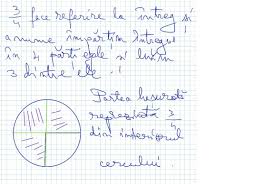 3/4 face referire la întreg și
anume împărțim întregul
în 4 părți egale și luăm
3 dintre ele !
Partea hașurată
reprezintă 3/4
din interiorul
cercului.